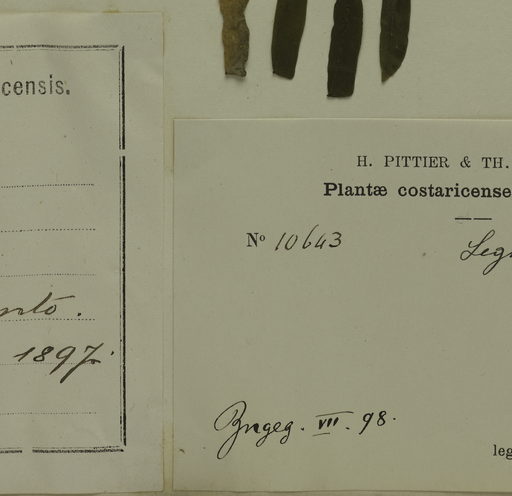 censis.
1897.
H. PITTIER & TH.
Plantæ costaricense
Nº 10643
Leg
Bngeg. VII. 98.
leg